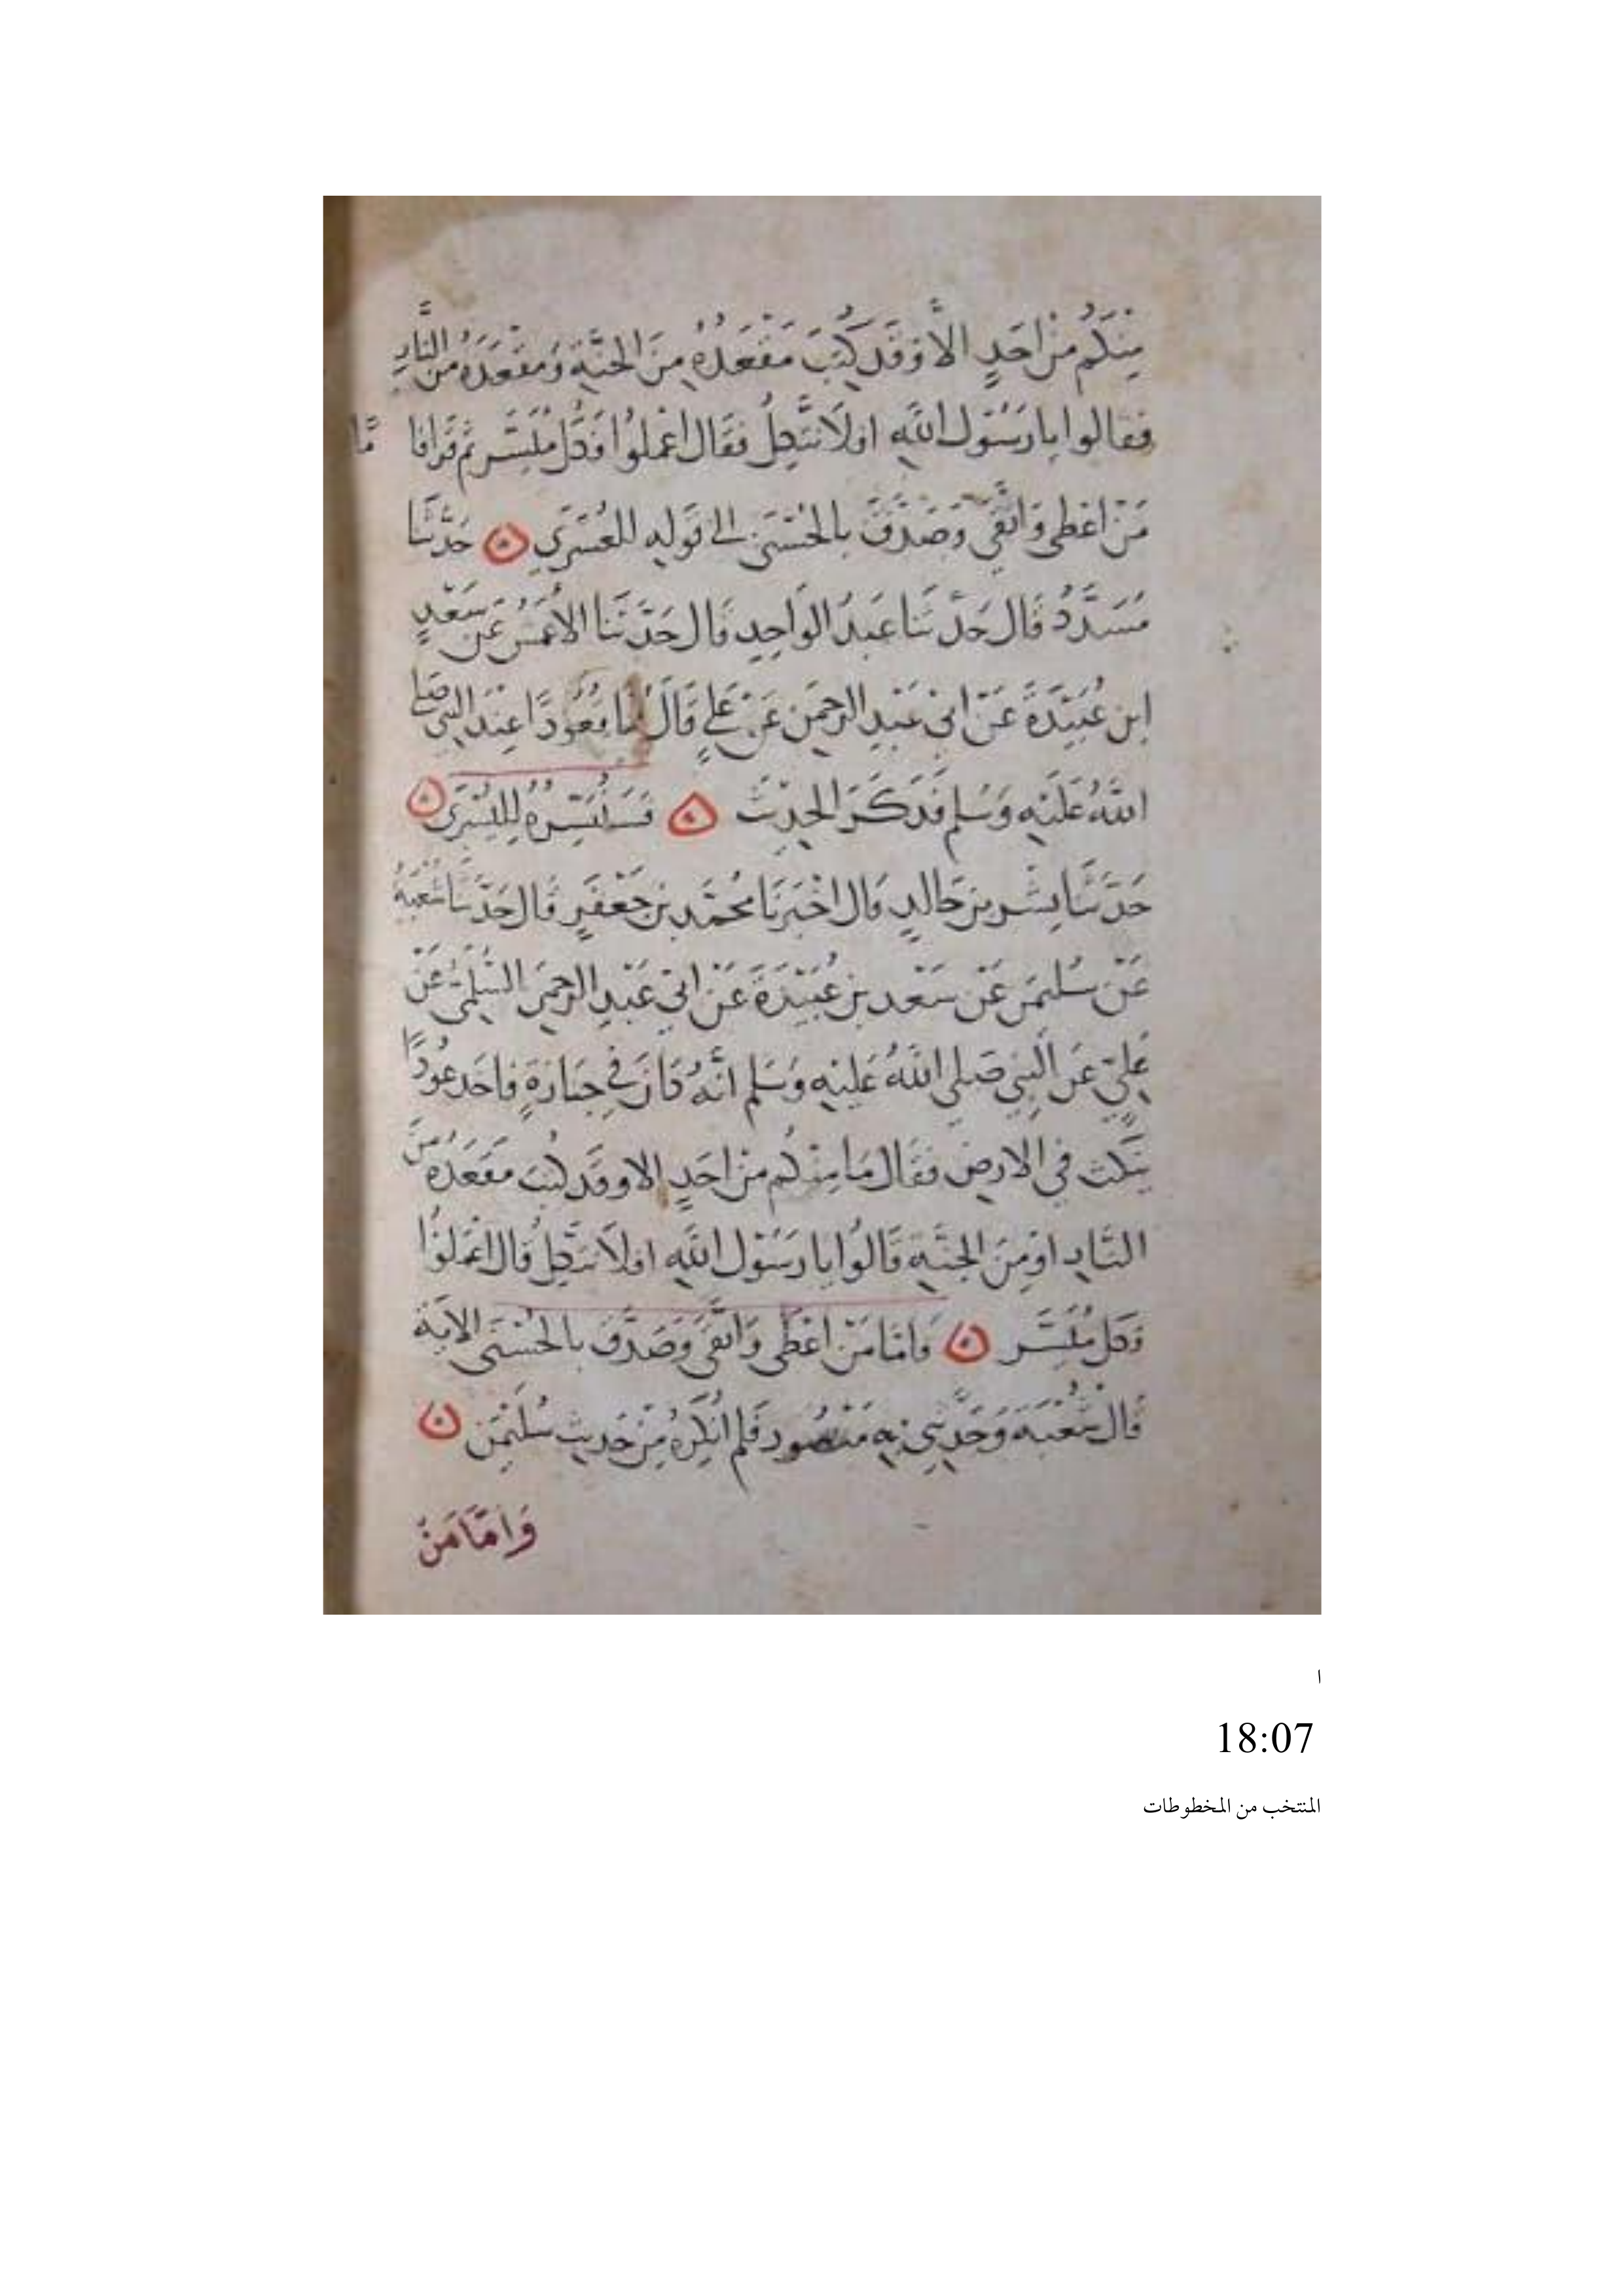 مِنْكُم مِنْ اَحَدٍ الاَّ وَقَد كُتِبَ مَقْعَدُهُ مِنَ الجَنَّةِ وَمَقْعَدُهُ مِنَ النَّارِ
فقالوا يا رَسُوْل اللَّهِ افلاَ نتَّكِلُ فقَال اعْملُوا فَكُل مُيَسَّر ثم قَرَا فا مَّا
مَنْ اعْطى وَاتَّقَى وَصَدَّقَ بالحُسْنَى الى قَولِهِ للعُسْرَى حَدَّثَنَا
مُسَدَّدُ قَال حَدَّثَنَا عَبدُ الوَاحِدِ قَال حَدَّثَنَا الأعْمَشُ عَن سَعْدِ
ابن عُبَيْدَةَ عَنْ ابى عَبْدِ الرحمَن عَنْ عَلىٍ قَالَ كُنَّا قُعُودًا عِنْدَ النَبِى صَلى
اللَّهُ عَلَيْهِ وَسَلم فَذكَرَ الحدِيْثَ فَسَنُيَسِّرُهُ لِليُسْرَى
حَدَّثَنَا بِشْر بن خَالدٍ قَال اخْبَرنَا مُحمَّد بن جَعْفَرٍ قَال حَدَّثَنَا شُعْبَةُ
عَنْ سُليمَن عَنْ سَعْد بن عُبَيْدَةَ عَنْ ابى عَبْدِ الرحمَن السُّلَمِىّ عَنْ
عَلِىّ عَن النَّبِى صَلى اللَّهُ عَلَيْهِ وَسَلم انَّهُ كَانَ فِى جَنَازَةٍ فاخَد عُودًا
يَنكت في الارضِ فقَال مَا مِنْكُم مِنْ احَدٍ الا وَقَد كُتِبَ مَقعَدُهُ مِنَ
النَّارِ اوْ مِنَ الجنَّةِ قَالُوا يا رَسُوْل اللَّهِ افلاَ نَتَّكِلُ قَال اعْمَلوُا
فَكل مُيَسَّر فَامَّا مَنْ اعْطَى وَاتَّقَى وَصَدَّقَ بالحُسْنَى الايَة
قَال شُعْبَة وَحَدَّثَنِى بِهِ مَنْصُور فَلم انْكِرْهُ مِنْ حَدِيثِ سُلَيْمَن
وَامَّا مَنْ
ا
18:07
المنتخب من المخطوطات